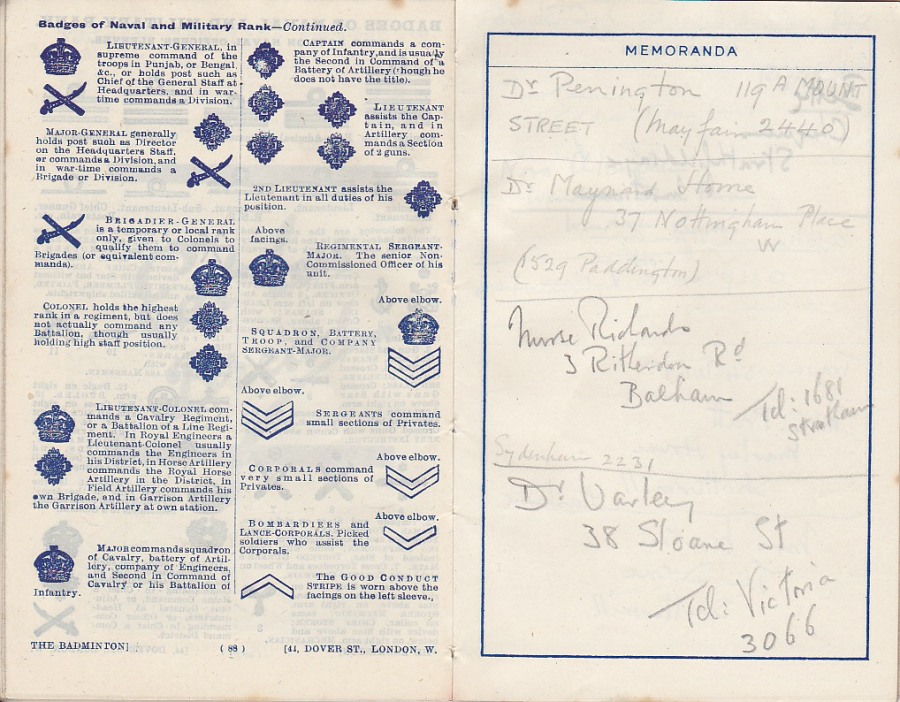 Badges of Naval and Military Rank—Continued.
LIEUTENANT-GENERAL, in
supreme command of the
troops in Punjab, or Bengal,
&c., or holds post such as
Chief of the General Staff at
Headquarters, and in war-
time commands a Division.
MAJOR-GENERAL generally
holds post such as Director
on the Headquarters Staff,
or commands a Division, and
in war-time commands a
Brigade or Division.
BRIGADIER-GENERAL
is a temporary or local rank
only, given to Colonels to
qualify them to command
Brigades (or equivalent com-
mands).
COLONEL holds the highest
rank in a regiment, but does
not actually command any
Battalion, though usually
holding high staff position.
LIEUTENANT-COLONEL com-
mands a Cavalry Regiment,
or a Battalion of a Line Regi-
ment. In Royal Engineers a
Lieutenant-Colonel usually
commands the Engineers in
his District, in Horse Artillery
commands the Royal Horse
Artillery in the District, in
Field Artillery commands his
own Brigade, and in Garrison Artillery
the Garrison Artillery at own station.
MAJOR commands squadron
of Cavalry, battery of Artil-
lery, company of Engineers,
and Second in Command of
Cavalry or his Battalion of
Infantry.
CAPTAIN commands a com-
pany of Infantry, and is usually
the Second in Command of a
Battery of Artillery (though he
does not have the title).
LIEUTENANT
assists the Cap-
tain, and in
Artillery com-
mands a Section
of 2 guns.
2ND LIEUTENANT assists the
Lieutenant in all duties of his
position.
Above
facings.
REGIMENTAL SERGEANT-
MAJOR. The senior Non-
Commissioned Officer of his
unit.
Above elbow.
SQUADRON, BATTERY,
TROOP, and COMPANY
SERGEANT-MAJOR.
Above elbow.
SERGEANTS command
small sections of Privates.
Above elbow.
CORPORALS command
very small sections of
Privates.
Above elbow.
BOMBARDIERS and
LANCE-CORPORALS. Picked
soldiers who assist the
Corporals.
The GOOD CONDUCT
STRIPE is worn above the
facings on the left sleeve.
THE BADMINTON] (88) [41, DOVER ST., LONDON, W.
MEMORANDA
Dr Penington 119A MOUNT
STREET (Mayfair 2440)
Dr Maynard Horne
37 Nottingham Place
W
(1529 Paddington)
Nurse Richards
3 Ritherdon Rd
Balham
Tel: 1681
Streatham
Sydenham 2231
Dr Varley
38 Sloane St
Tel: Victoria
3066